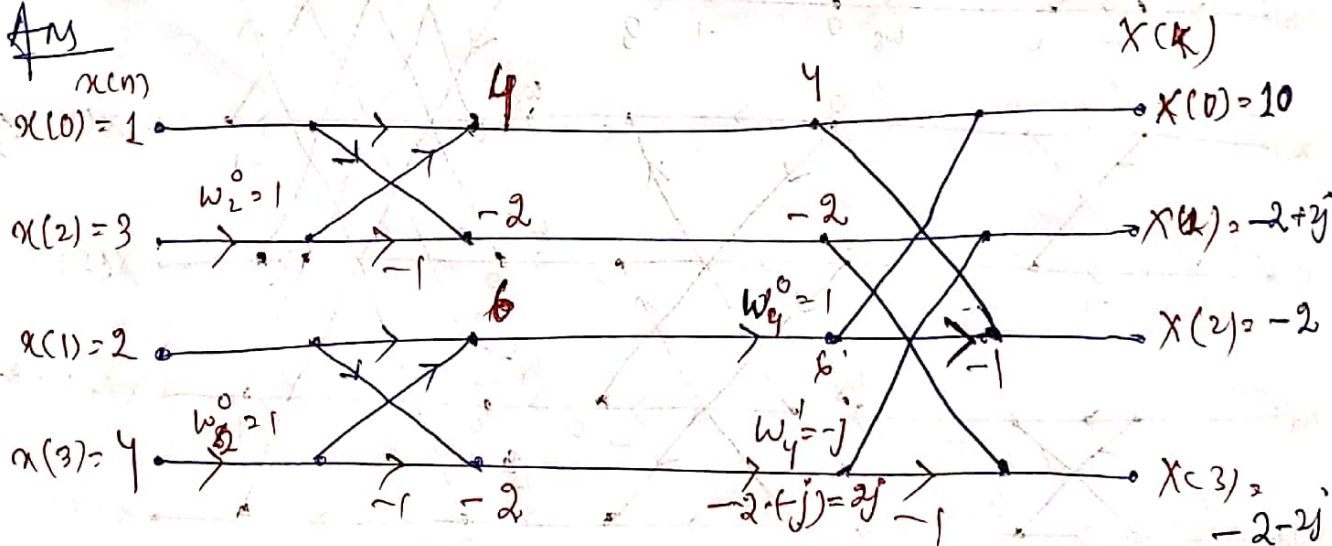 Ans
x(n)
X(k)
x(0) = 1
4
4
X(0) = 10
W₂⁰ = 1
x(2) = 3
-1
-2
-2
X(1) = -2+2j
x(1) = 2
6
W₄⁰ = 1
6
-1
X(2) = -2
W₂⁰ = 1
x(3) = 4
-1
-2
W₄¹ = -j
-2·(-j) = 2j
-1
X(3) =
-2-2j